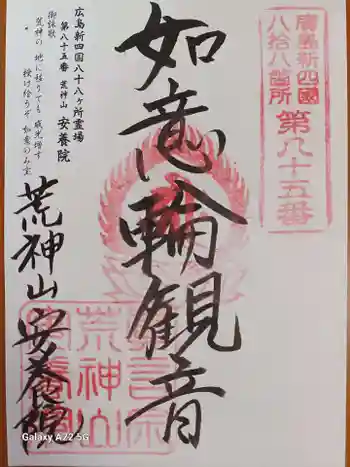 廣島新四國
八拾八箇所
第八十五番
如意輪観音
広島新四国八十八ヶ所霊場
第八十五番 荒神山 安養院
御詠歌
荒神の 地に移りても 威光増す
授け給うぞ 如意のみ宝
荒神山安養院
荒神山
Galaxy A22 5G